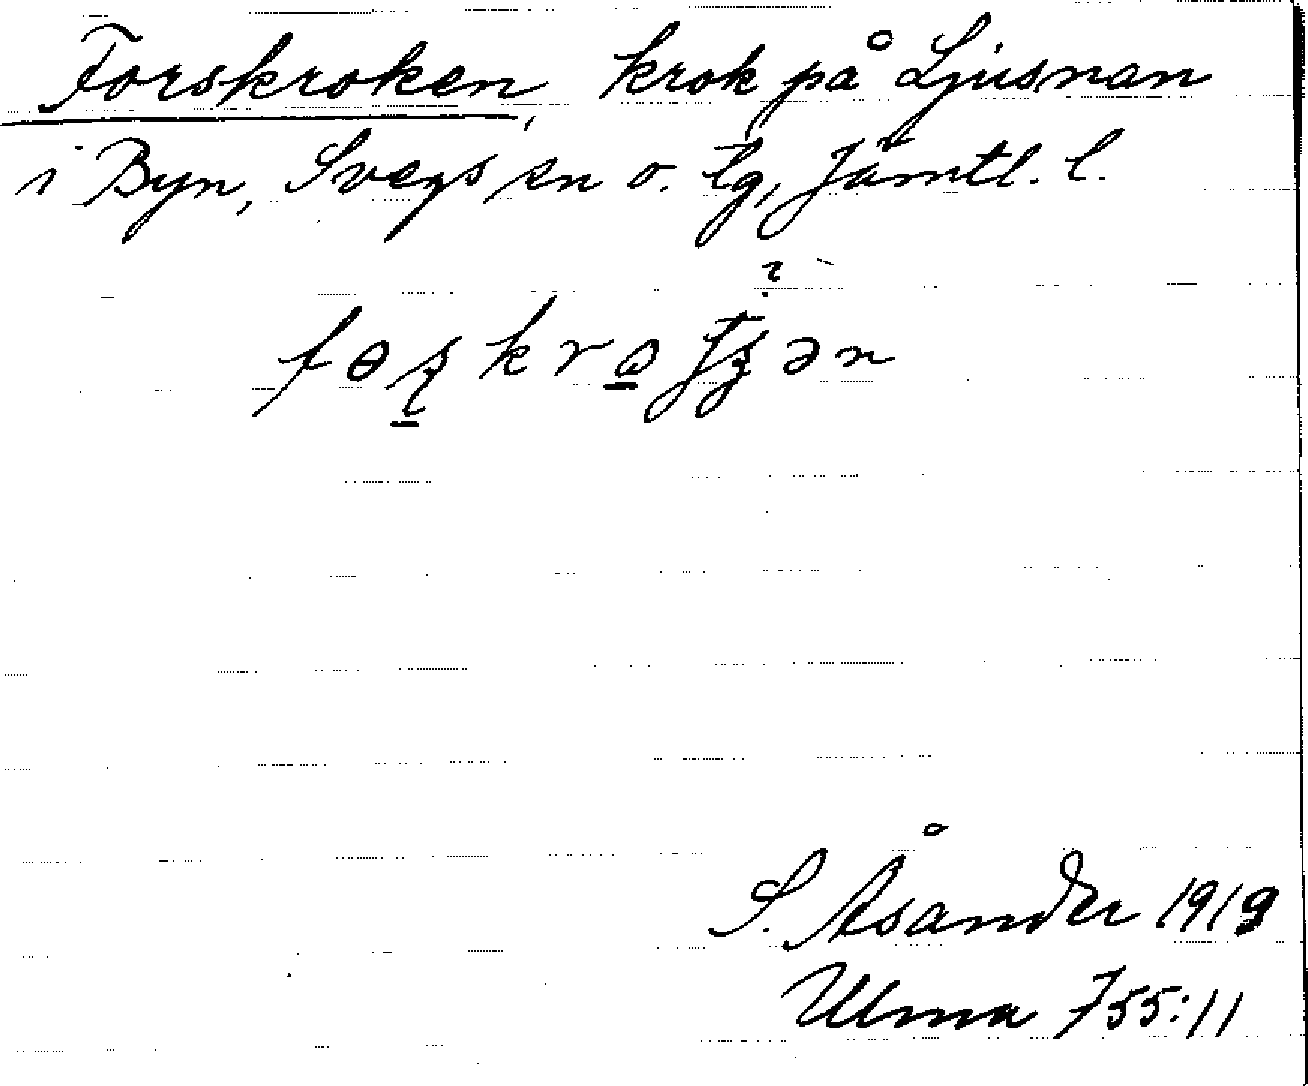 Forskroken, krok på Ljusnan
i Byn, Svegs sn o. tg, Jämtl. l.
S. Åsander 1919
Ulma 755:11